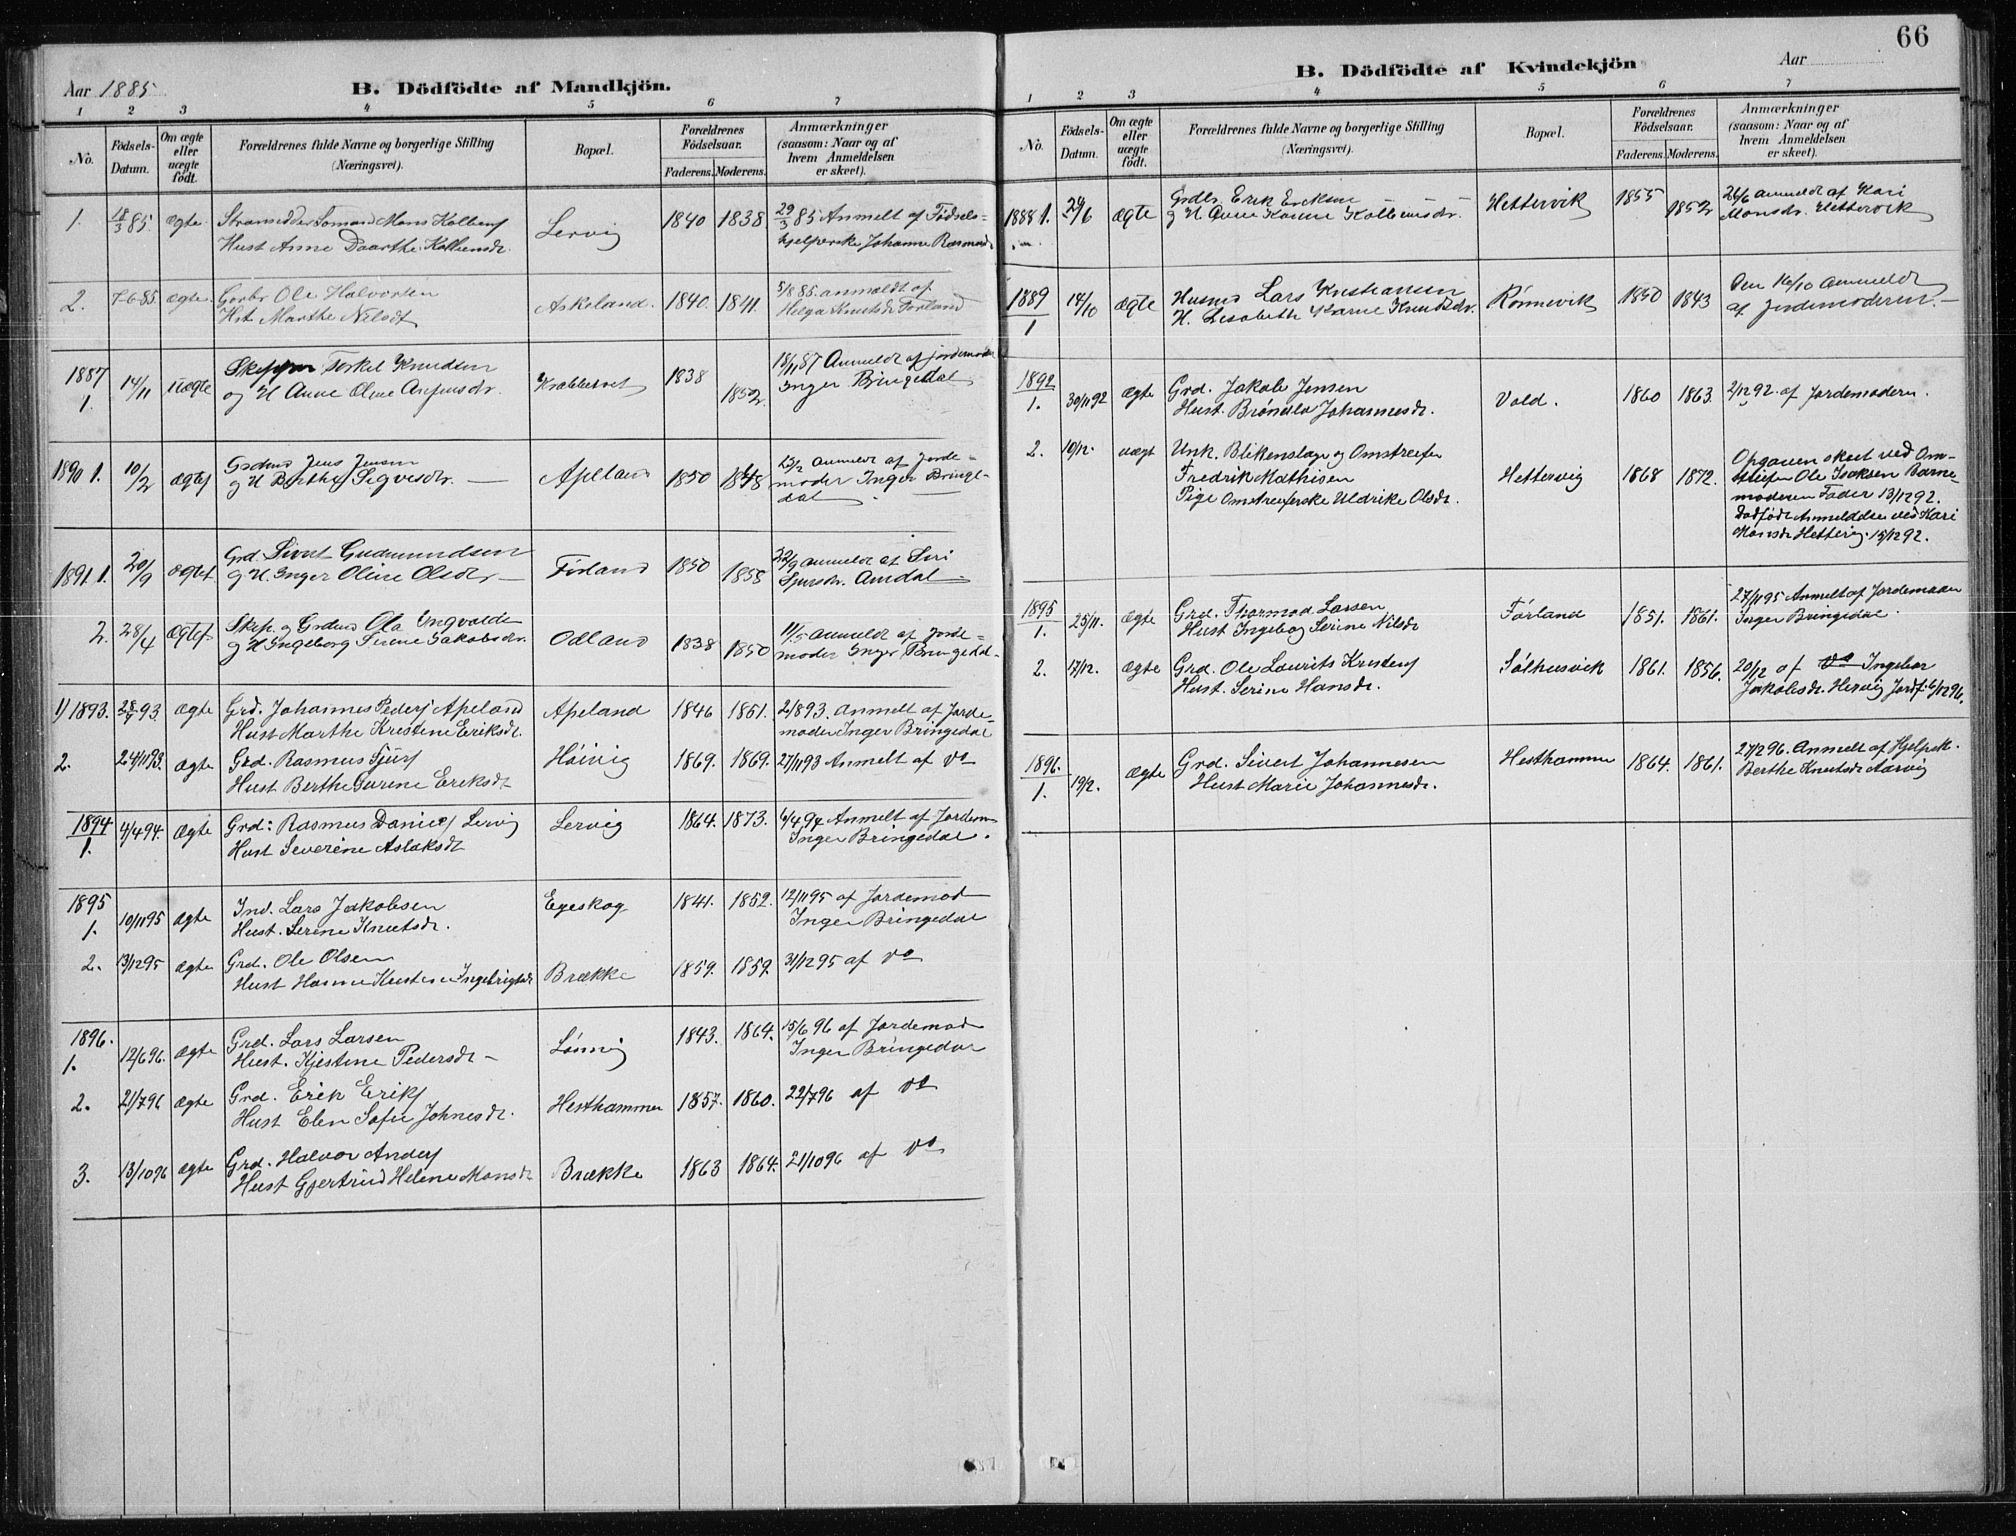 66
Aar 1885
B. Dödfödte af Mandkjön.
1 2 3 4 5 6 7
No.
Födsels-
Datum.
Om ægte
eller
uægte
födt.
Forældrenes fulde Navne og borgerlige Stilling
(Næringsvei).
Bopæl.
Forældrenes
Födselsaar.
Faderens. Moderens.
Anmærkninger
(saasom: Naar og af
hvem Anmeldelsen
er skeet).
1. 18/3 85. ægte Mons Kolbens Lervig 1840 1838 29/3 85 Anmelt af Födsels-
Hust Anne Daarthe Kolbensdr. hjelperske Johanne Rasmusd
2. 7-6-85. ægte. Gbr Ole Halvorsen Askeland. 1840. 1841. 5/8 85 anmeldt af
Hst Marthe Nilsdt Helga Knutsdr Førland
1887
1. 14/11 uægte Torkel Knudsen 1838 1852. 18/11 87 Anmeldt af jordemoder
og H Anne Oline Inger Bringedal
1890 1. 10/2 ægtef Grdmd Jens Jensen Apeland 1850 1848 Anmeldt af Jorde-
og H Berthe Sigvesdr. moder Inger Bringe-
dal
1891 1. 20/9 ægtef Grd Sivert Gudmundsen Førland 1850 1858 22/9 Anmeldt af Siri
og H. Inger Oline Olsdr Amdal
2. 28/4 Ægtef Skip. og Grdmd Ola Ingvalds Odland 1838 1850 11/5 Anmeldt af Jorde-
og H Ingeborg Serene Jakobsdr. moder Inger Bringedal.
1/1893. 28/7 93. ægte Grd. Johannes Peders Apeland Apeland 1846 1851. 2/8 93. Anmelt af Jorde-
Hust Marthe Kristine Eriksdr. moder Inger Bringedal
2. 24/11 93. ægte Grd. Rasmus Sjurs Høivig 1869. 1869. 27/11 93 Anmelt af do
Hust Berthe Gurine Eriksdt
1894
1. 4/4 94. Ægte Grd: Rasmus Daniels Lervig Lervig 1864. 1873. 6/4 94 Anmelt af Jordem
Hust Severine Aslaksdr Inger Bringedal.
1895
1. 10/11 95 ægte Ind. Lars Jakobsen Egeskog 1841. 1852. 12/11 95 af Jordemod
Hust. Serine Knutsdr. Inger Bringedal
2. 13/12 95 ægte Grd. Ole Olsen Brække 1859. 1859. 31/12 95 af do
Hust Hanne Kristine Ingebrigtsdr
1896.
1. 12/6 96. ægte Grd. Lars Larsen Lønnig 1843. 1864. 15/6 96 af Jordemod
Hust. Kjestine Pedersdr - Inger Bringedal
2. 21/7 96 ægte Grd. Erik Eriks Hesthammer 1857. 1860. 22/7 96 af do
Hust Elen Sofie Johnesdr.
3. 13/10 96 ægte Grd. Halvor Anders Brække 1863 1864. 21/10 96 af do
Hust Gjertrud Helene Monsdr
B. Dödfödte af Kvindekjön
Aar
1 2 3 4 5 6 7
No.
Födsels-
Datum.
Om ægte
eller
uægte
födt.
Forældrenes fulde Navne og borgerlige Stilling
(Næringsvei).
Bopæl.
Forældrenes
Födselsaar.
Faderens. Moderens.
Anmærkninger
(saasom: Naar og af
hvem Anmeldelsen
er skeet).
1888 1. 24/6 ægte Grdbr Erik Eriksen Hettervik 1855 1852 26/6 anmeldt af Kari
og H Anne Karine Kolbensdr. Monsdr. Hettervik
1889
1 14/10 Ægte Husmd Lars Kristiansen Rønnevik 1850 1843 Den 16/10 Anmeldt
H. Lisabeth Karine Knudsdr. af Jordemoderen.
1892
1. 30/11 92 Ægte Grd. Jakob Jensen Vold. 1860 1863. 2/12 92. af Jordemodern.
Hust. Brønla Johannesdr.
2. 10/12. uægt Unk. Blikenslager og Omstreifer Hettervig 1868 1872. Opgaven skeet ved Om-
Fredrik Mathisen streifer Ole Isaksen Barne
Pige Omstreiferske Uldrike Olsdr. moderens Fader 13/12 92.
Dødfødt Anmeldelse ved Kari
Monsdr Hettevig 15/12 92.
1895
1. 25/11. ægte Grd. Thormod Larsen Førland 1851. 1861. 27/11 95 Anmelt af Jordemoder
Hust Ingebog Serine Nilsdr Inger Bringedal.
2. 17/12. Ægte Grd. Ole Laurits Kristens Sølhusvik 1861. 1856. 20/12 af do Ingebor
Hust. Serine Hansdr. Jakobsdr. Hervig
1896.
1. 19/2. ægte Grd. Sivert Johannesen Hesthammer 1864. 1861. 27/2 96. Anmelt af Hjelpek.
Hust Marie Johannesdr. Berthe Knutsdr Aarvig